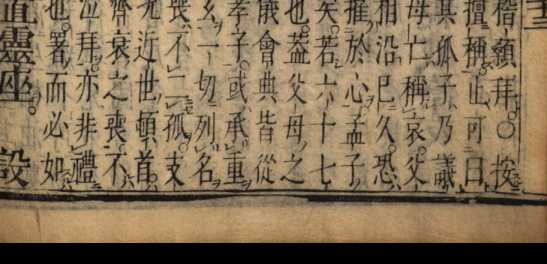 稽顙拜○按
擅稱止可曰
其孤子乃議
母亡稱哀父
相沿已久恐
摧於心孟子
矣若六十七
也蓋父母之
儀會典皆從
孝子或承重
一切列名
喪不二孤支
況近世頓首
齊衰之喪不
泣拜亦非禮
也署而必如
置靈座。設